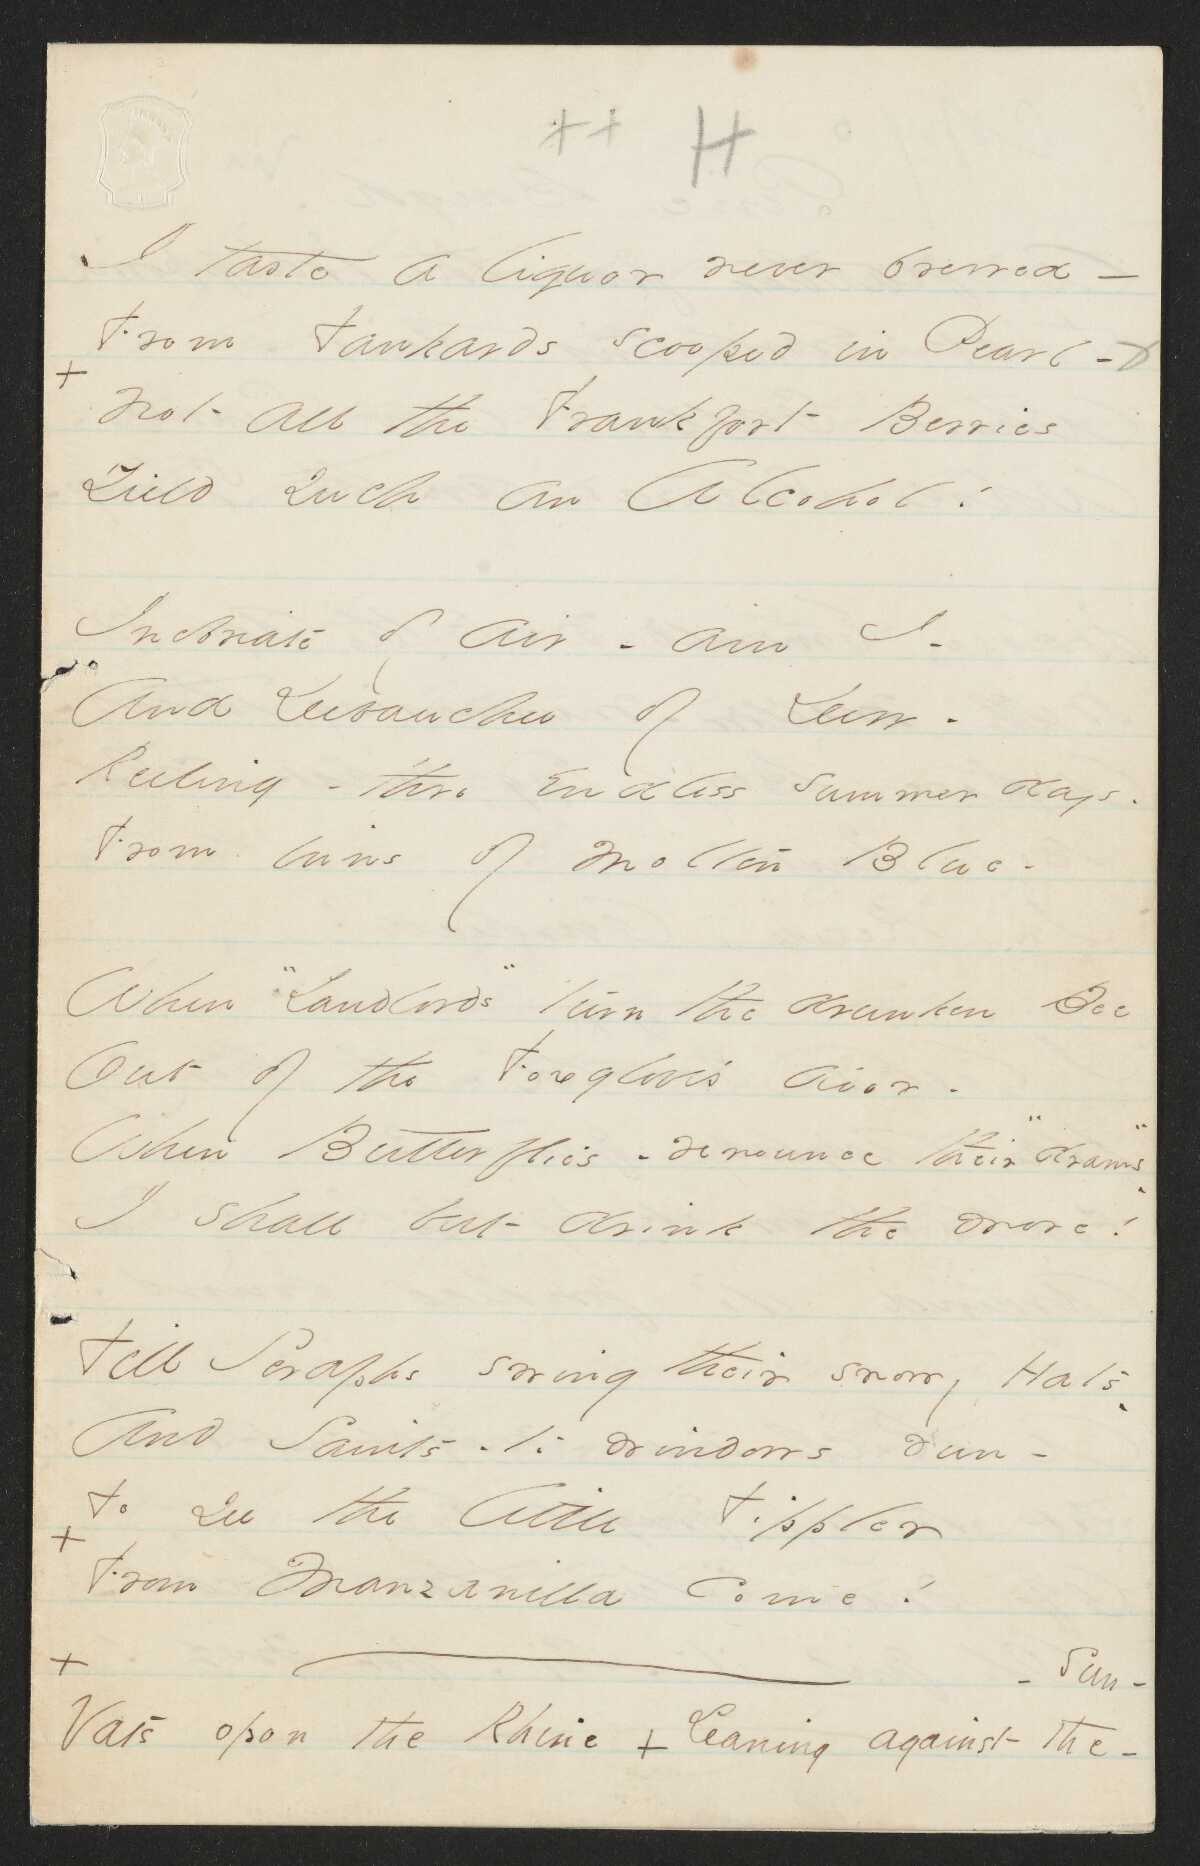 ++ H
I taste a liquor never brewed –
From Tankards scooped in Pearl –
+ Not all the Frankfort Berries
Yield such an Alcohol!
Inebriate of air – am I –
And Debauchee of Dew –
Reeling – thro endless summer days –
From inns of molten Blue –
When "Landlords" turn the drunken Bee
Out of the Foxglove's door –
When Butterflies – renounce their "drams" –
I shall but drink the more!
Till Seraphs swing their snowy Hats –
And Saints – to windows run –
To see the little Tippler
+ From Manzanilla come!
+ – Sun –
Vats upon the Rhine + Leaning against the –